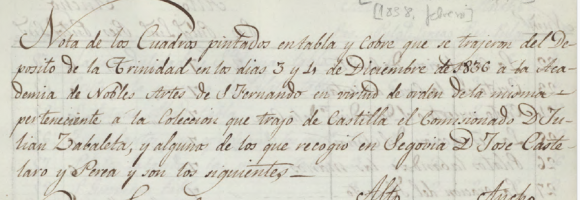 [1838, febrero]
Nota de los Cuadros pintados en tabla y Cobre que se trajeron del De-
posito de la Trinidad en los dias 3 y 4 de Diciembre de 1836 a la Aca-
demia de Nobles Artes de S. Fernando en virtud de orden de la misma
perteneciente a la Coleccion que trajo de Castilla el Comisionado D. Ju-
lian Zabaleta, y algunos de los que recogió en Segovia D. Jose Caste-
laro y Perea y son los siguientes
Alto Ancho